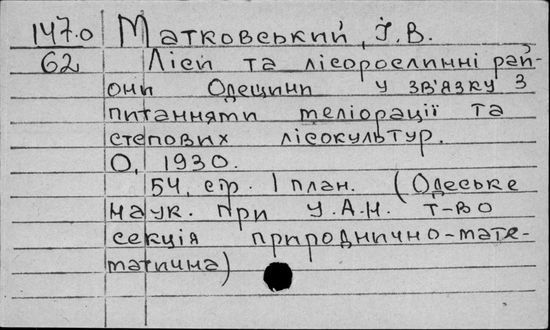 147.0 Матковський, І.В.
62 Ліси та лісорослинні рай-
они Одещини у зв'язку з
питаннями меліорації та
степових лісокультур.
О, 1930.
54, стр. 1 план. (Одеське
наук. при У.А.Н. т-во
секція природничо-мате-
матична)